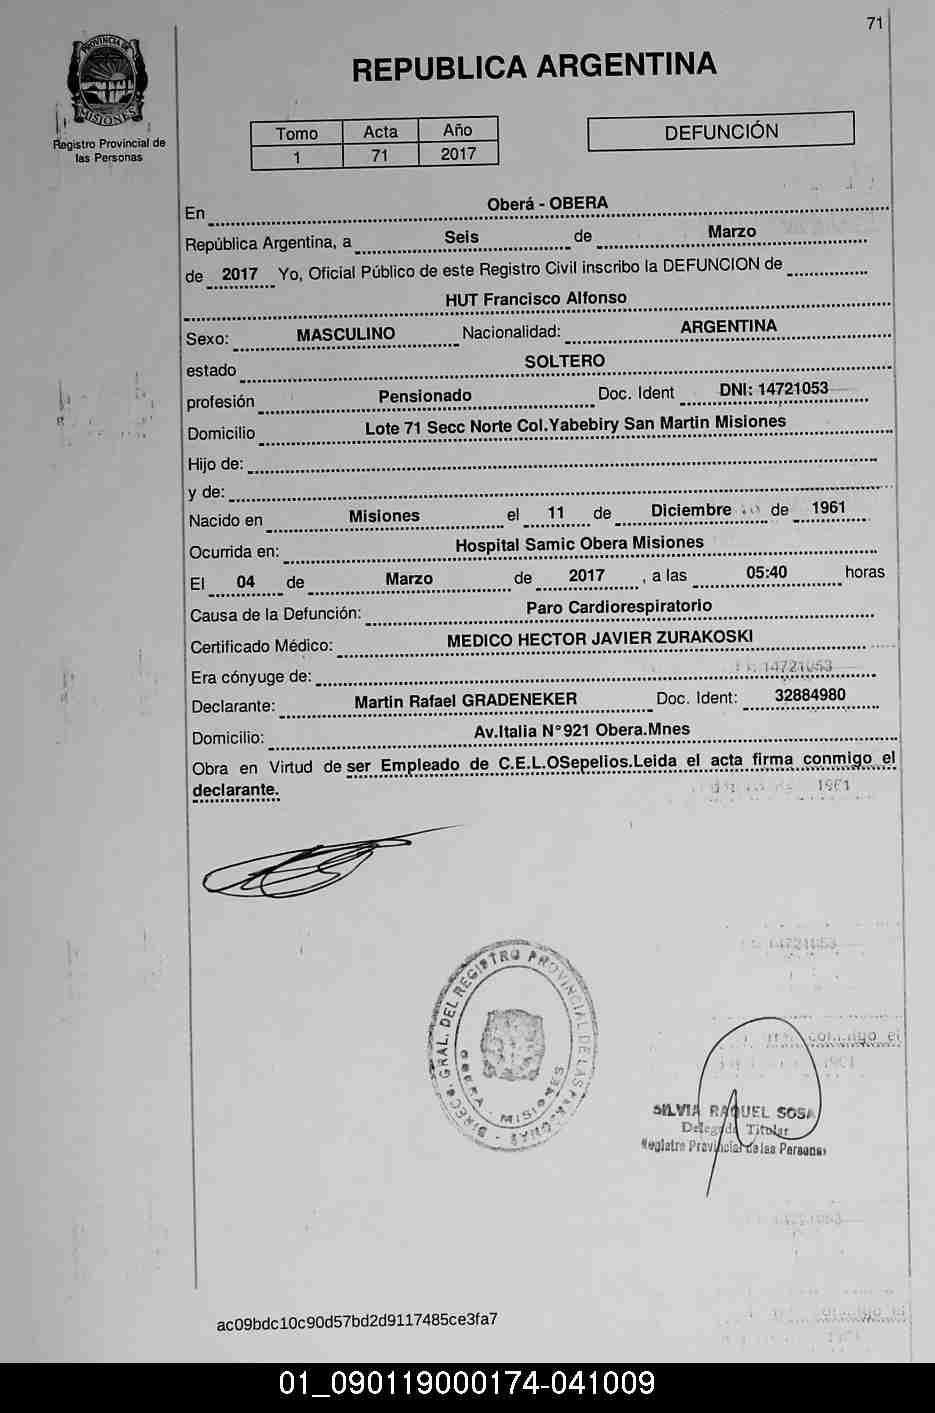 71
PROVINCIA DE
MISIONES
Registro Provincial de
las Personas
REPUBLICA ARGENTINA
Tomo Acta Año
1 71 2017
DEFUNCIÓN
En Oberá - OBERA
República Argentina, a Seis de Marzo
de 2017 Yo, Oficial Público de este Registro Civil inscribo la DEFUNCION de
HUT Francisco Alfonso
Sexo: MASCULINO Nacionalidad: ARGENTINA
estado SOLTERO
profesión Pensionado Doc. Ident DNI: 14721053
Domicilio Lote 71 Secc Norte Col.Yabebiry San Martin Misiones
Hijo de:
y de:
Nacido en Misiones el 11 de Diciembre de 1961
Ocurrida en: Hospital Samic Obera Misiones
El 04 de Marzo de 2017 , a las 05:40 horas
Causa de la Defunción: Paro Cardiorespiratorio
Certificado Médico: MEDICO HECTOR JAVIER ZURAKOSKI
Era cónyuge de:
Declarante: Martin Rafael GRADENEKER Doc. Ident: 32884980
Domicilio: Av.Italia N°921 Obera.Mnes
Obra en Virtud de ser Empleado de C.E.L.OSepelios.Leida el acta firma conmigo el
declarante.
DIREC. GRAL. DEL REGISTRO PROVINCIAL DE LAS PERSONAS
OBERA - MISIONES
SILVIA RAQUEL SOSA
Delegada Titular
Registro Provincial de las Personas
ac09bdc10c90d57bd2d9117485ce3fa7
01_090119000174-041009